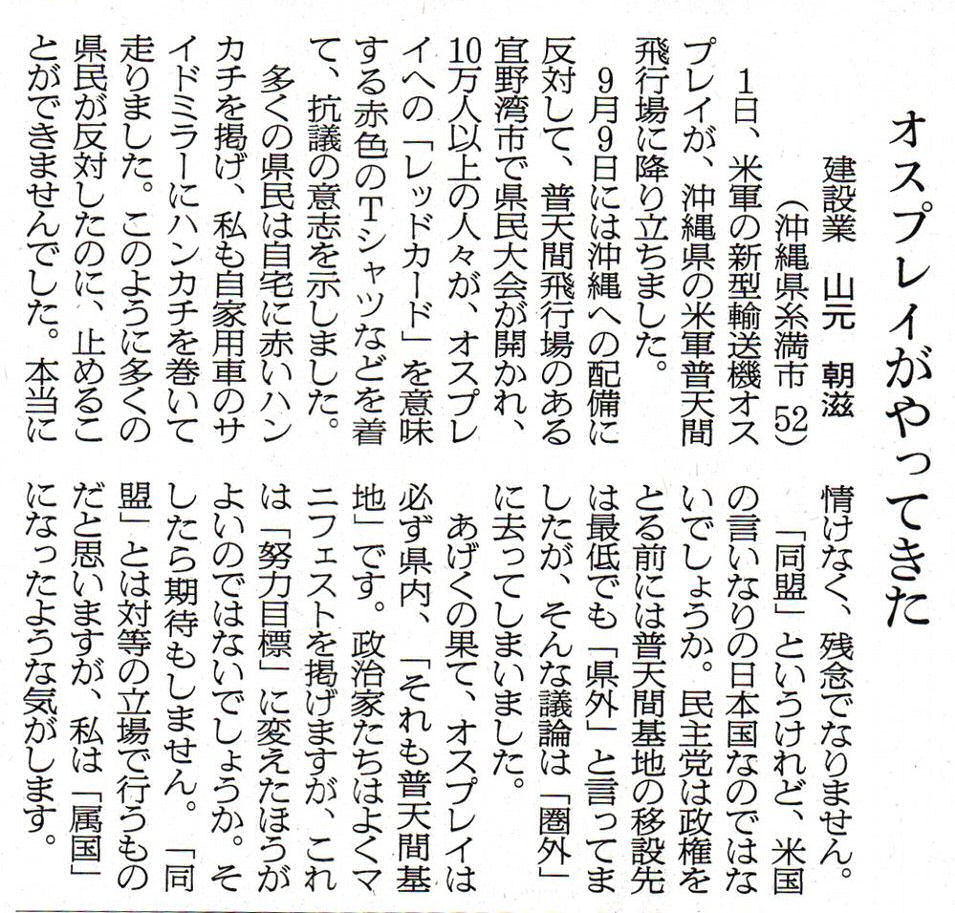 オスプレイがやってきた
建設業　山元　朝滋
（沖縄県糸満市　52）
　1日、米軍の新型輸送機オス
プレイが、沖縄県の米軍普天間
飛行場に降り立ちました。
　9月9日には沖縄への配備に
反対して、普天間飛行場のある
宜野湾市で県民大会が開かれ、
10万人以上の人々が、オスプレ
イへの「レッドカード」を意味
する赤色のTシャツなどを着
て、抗議の意志を示しました。
　多くの県民は自宅に赤いハン
カチを掲げ、私も自家用車のサ
イドミラーにハンカチを巻いて
走りました。このように多くの
県民が反対したのに、止めるこ
とができませんでした。本当に
情けなく、残念でなりません。
　「同盟」というけれど、米国
の言いなりの日本国なのではな
いでしょうか。民主党は政権を
とる前には普天間基地の移設先
は最低でも「県外」と言ってま
したが、そんな議論は「圏外」
に去ってしまいました。
　あげくの果て、オスプレイは
必ず県内、「それも普天間基
地」です。政治家たちはよくマ
ニフェストを掲げますが、これ
は「努力目標」に変えたほうが
よいのではないでしょうか。そ
したら期待もしません。「同
盟」とは対等の立場で行うもの
だと思いますが、私は「属国」
になったような気がします。